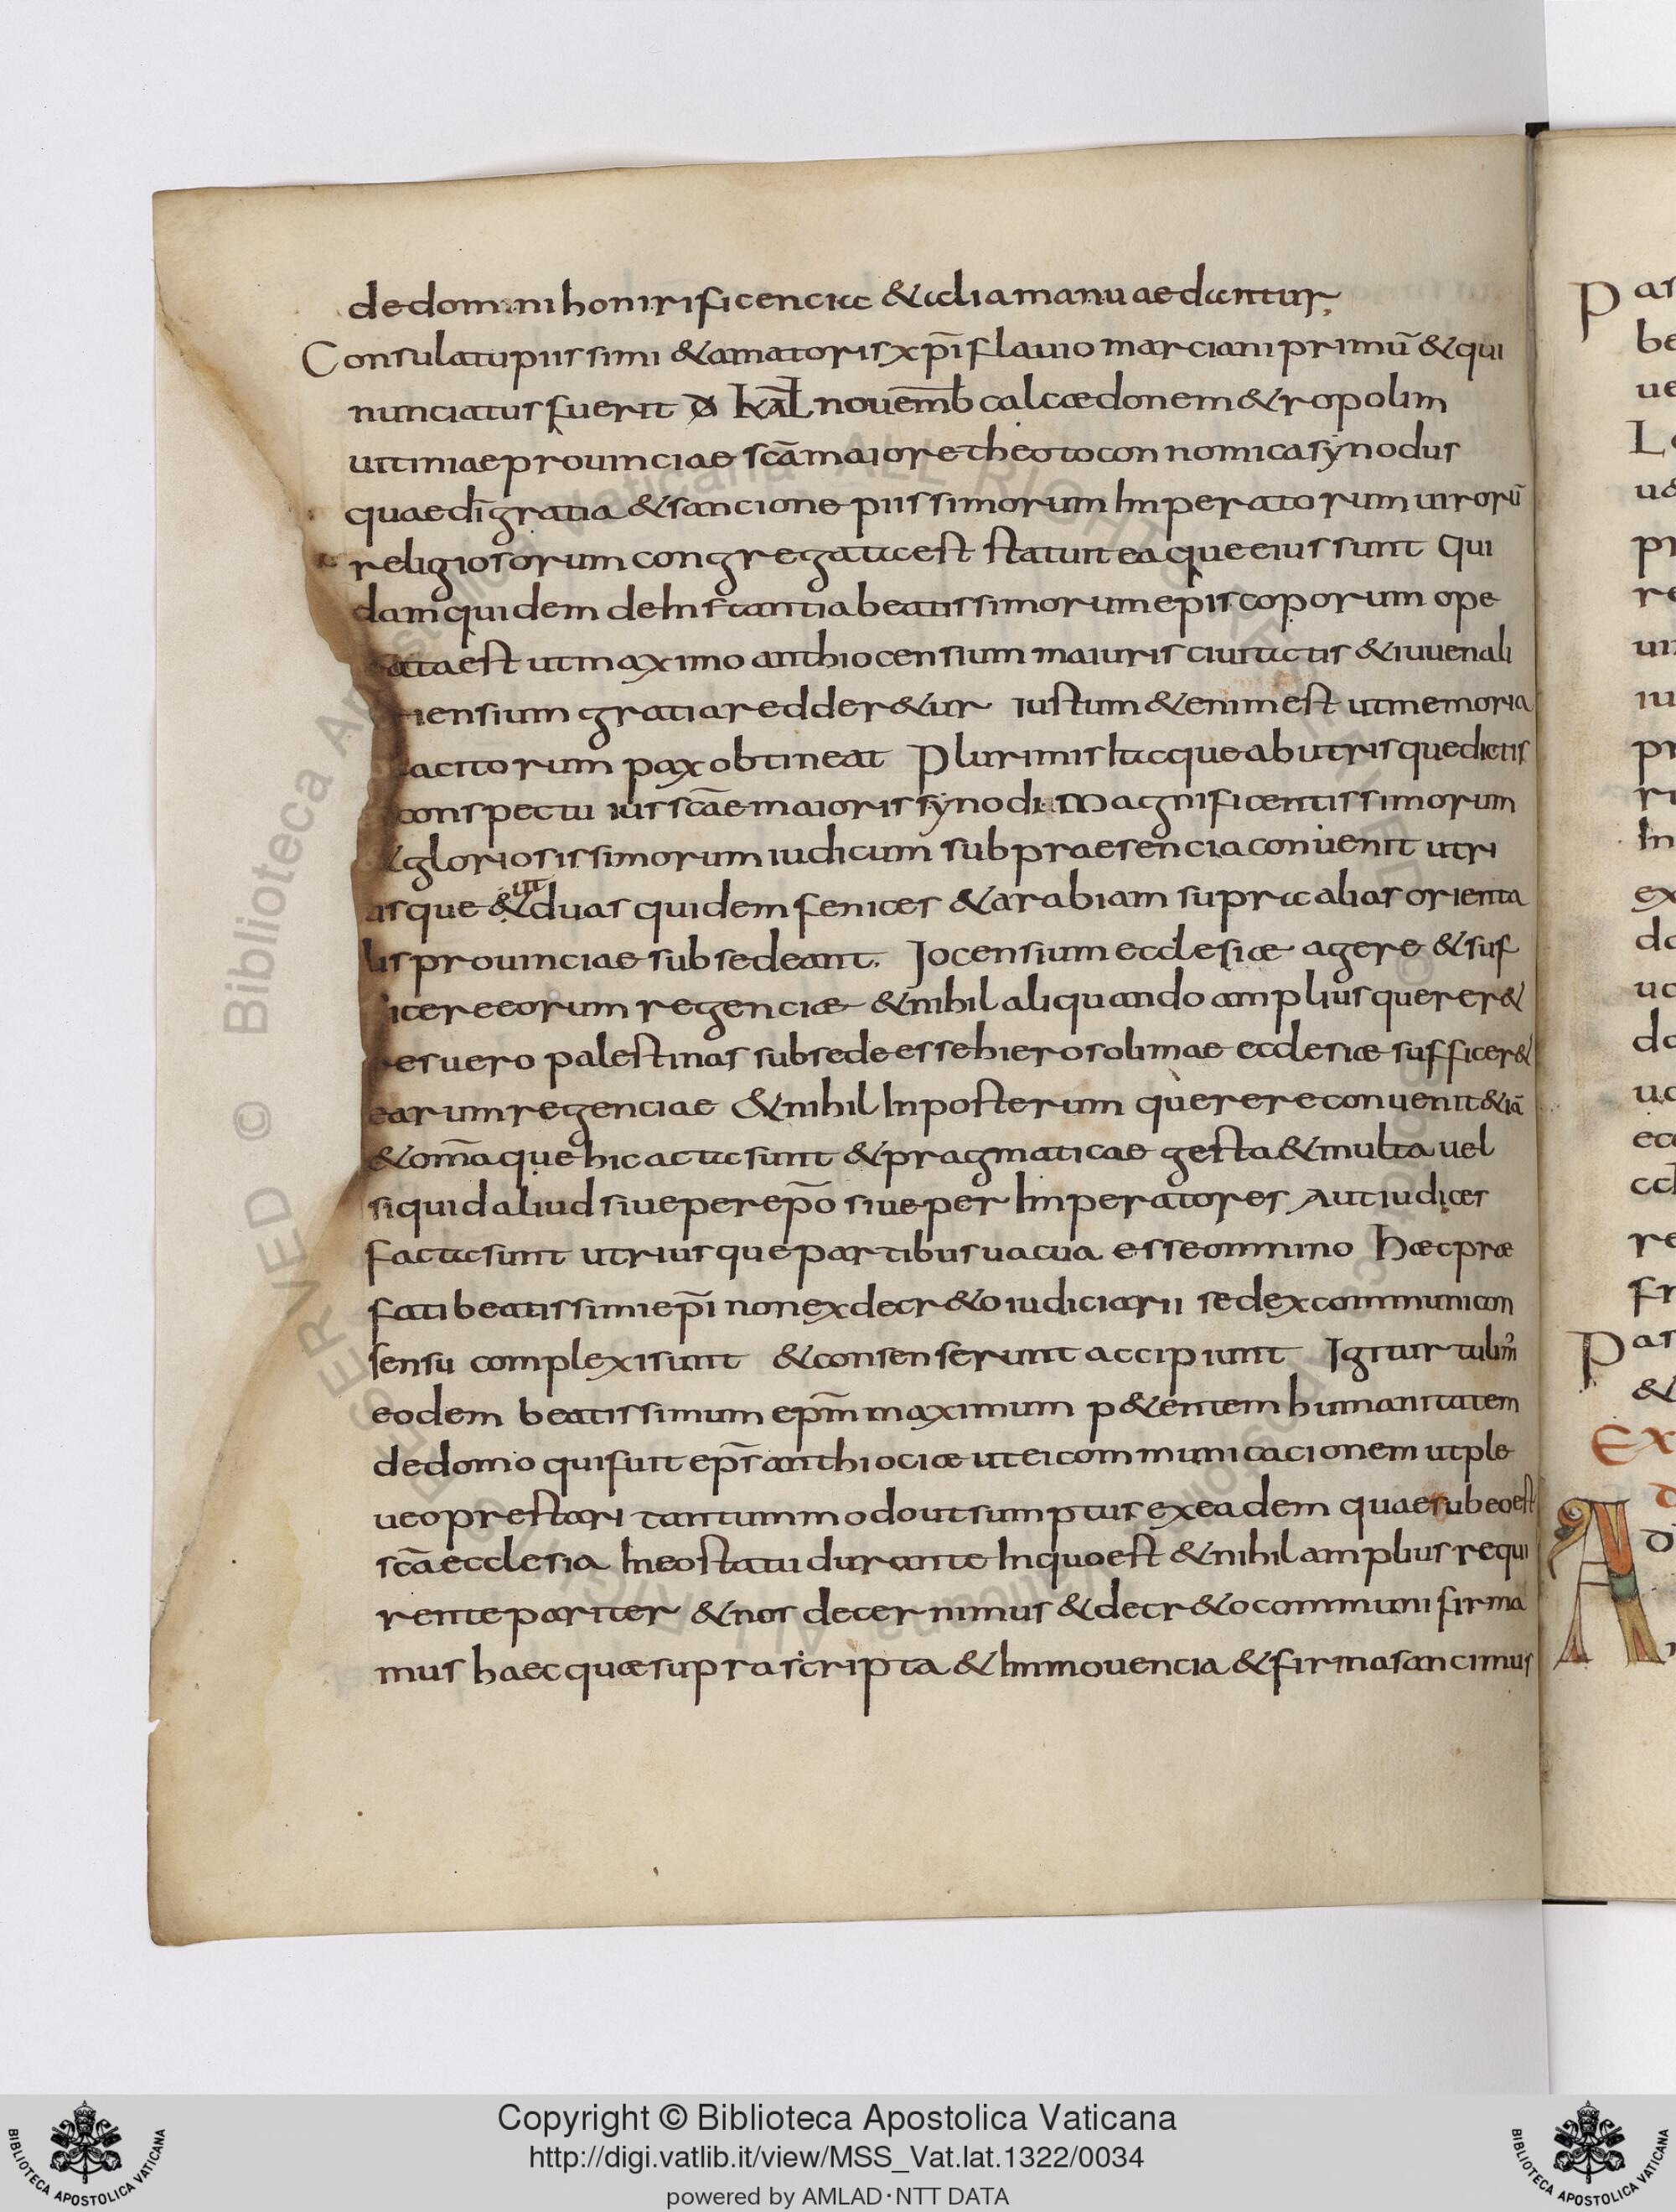 de domini honirificenciae & alia manu aedantur;
Consulatu piissimi & amatoris xp̄i flauio marciani primū & qui
nunciatus fuerit kal̄ nouem̄b calcaedonem &ropolim
uitiniae prouinciae sc̄a maiore theotocon nomica synodus
quae dī gratia & sancione piissimorum Imperatorum uirorū
religiosorum congregata est statuit ea que eius sunt Qui
dam quidem de Instantia beatissimorum episcoporum ope
ata est ut maximo anthiocensium maiuris ciuitatis & iuuenali
iensium gratia redder&ur iustum &enim est ut memoria
acitorum pax obtineat Plurimis itacque ab utrisque dictis
conspectu ius sc̄ae maioris synodi Magnificentissimorum
& gloriosissimorum iudicum sub praesencia conuenit utri
usque & ut duas quidem fenices & arabiam supra alias orienta
lis prouinciae sub sedeant. Jocensium ecclesiae agere & suf
icere eorum regenciae & nihil aliquando amplius querer&
es uero palestinas sub sede esse hierosolimae ecclesiae sufficer&
earum regenciae & nihil In posterum querere conuenit & iā
& om̄a que hic acta sunt & pragmaticae gesta & multa uel
si quid aliud siue per ep̄o siue per Imperatores Aut iudices
facta sunt utriusque partibus uacua esse omnino Haec prae
fati beatissimi ep̄i non ex decr&o iudiciarii sed ex communi con
sensu complexi sunt & consenserunt accipiunt Igitur tulim᾽
eodem beatissimum ep̄m maximum p&entem humanitatem
de domo qui fuit ep̄s anthiociae ut ei communicacionem ut ple
ueo prestari tantummodo ut sumptus ex eadem quae sub eo est
sc̄a ecclesia In eo statu durante In quo est & nihil amplius requi
rente pariter & nos decernimus & decr&o communi firma
mus haec quae suprascripta & Immouencia & firma sancimus
Copyright © Biblioteca Apostolica Vaticana
http://digi.vatlib.it/view/MSS_Vat.lat.1322/0034
powered by AMLAD·NTT DATA